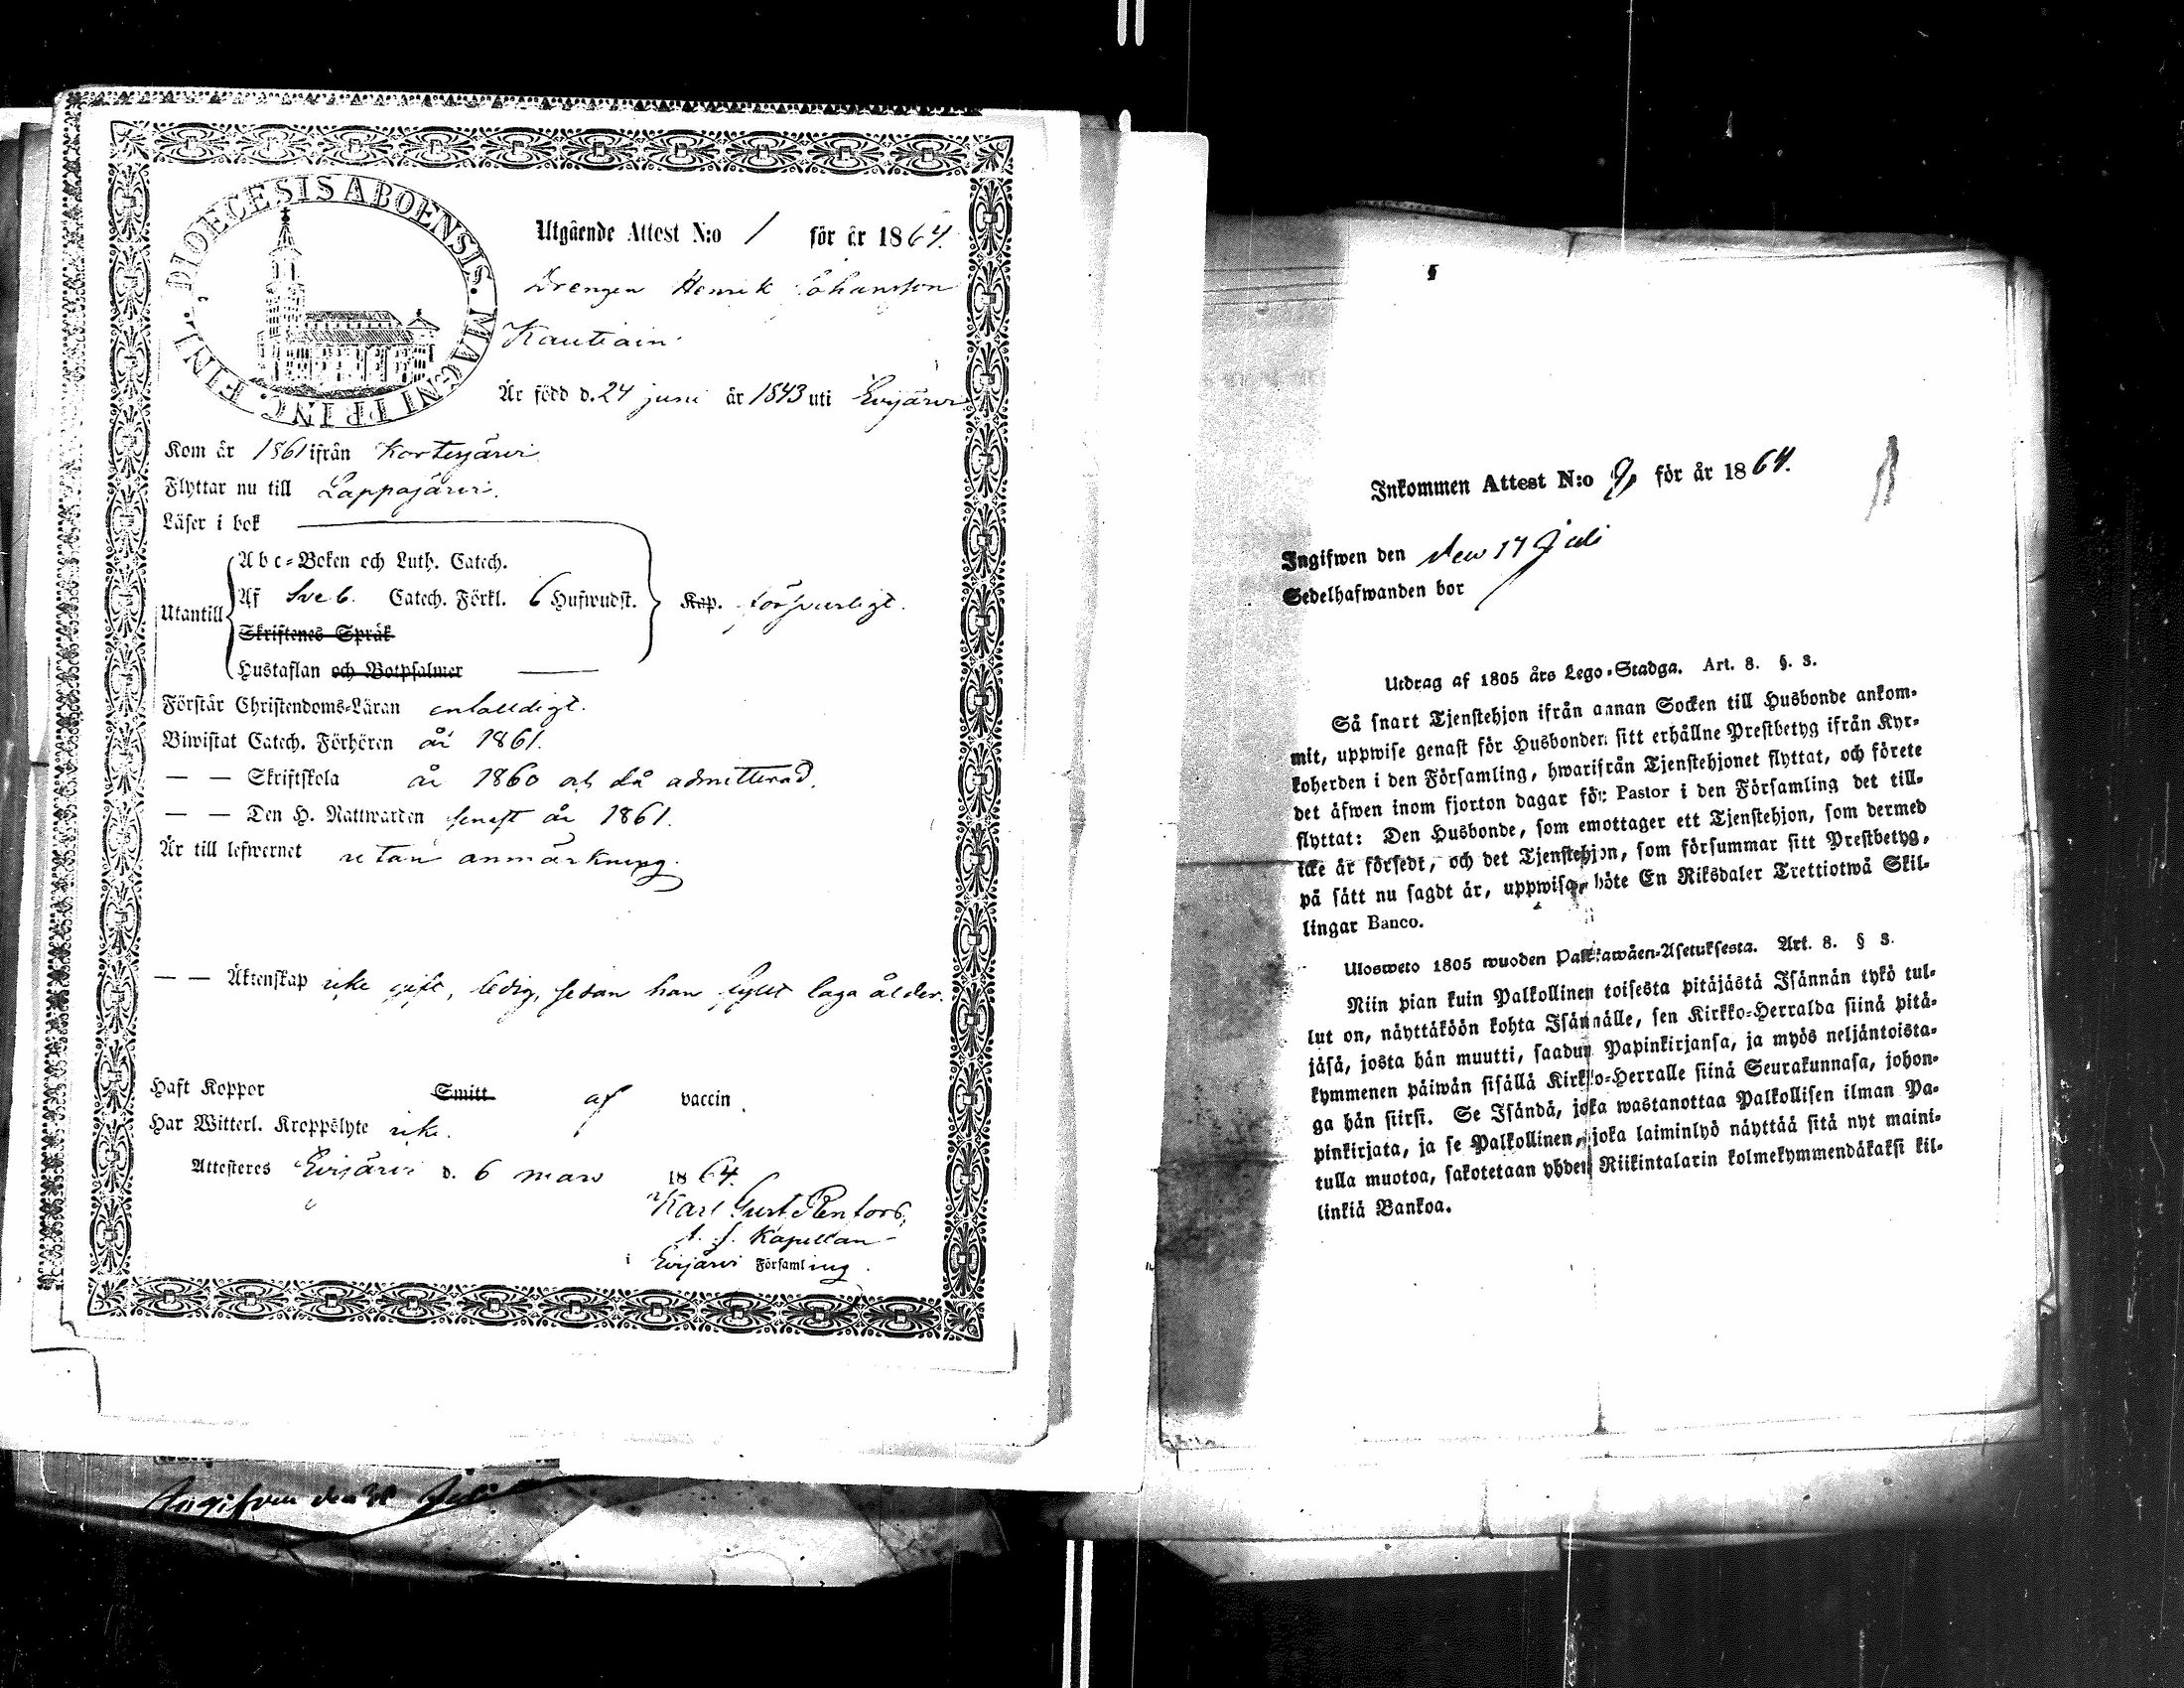 DIOECESIS ABOENSIS. MAGNI PRINC. FINL.
Utgående Attest N:o 1 för år 1864.
Drengen Henrik Johansson
Kautiain
Är född d. 24 juni år 1843 uti Evijärvi
Kom år 1861 ifrån Kortesjärvi
Flyttar nu till Lappajärvi.
Läser i bok
Abc-Boken och Luth. Catech.
Utantill
Af Sveb. Catech. Förkl. 6 Hufwudst. Kap. försvarligt.
Skriftenes Språk
Hustaflan och Botpsalmer
Förstår Christendoms-Läran enfaldigt.
Biwistat Catech. Förhören år 1861.
— — Skriftskola år 1860 och då admitterad.
— — Den H. Nattwarden senast år 1861.
Är till lefwernet utan anmärkning.
— — Äktenskap icke gift, ledig, sedan han fyllt laga ålder.
Haft Koppor Smitt af vaccin
Har Witterl. Kroppslyte icke.
Attesteres Evijärvi d. 6 mars 1864.
Karl Gust. Renfors,
Kapellan
i Evijärvi Församling.
Ingifven den Juli
Inkommen Attest N:o för år 1864.
Ingifwen den den 17 Juli
Sedelhafwanden bor
Utdrag af 1805 års Lego-Stadga. Art. 8. §. 3.
Så snart Tjenstehjon ifrån annan Socken till Husbonde ankom-
mit, uppwise genast för Husbonden sitt erhållne Prestbetyg ifrån Kyr-
koherden i den Församling, hwarifrån Tjenstehjonet flyttat, och förete
det äfwen inom fjorton dagar för Pastor i den Församling det till-
flyttat: Den Husbonde, som emottager ett Tjenstehjon, som dermed
icke är försedt, och det Tjenstehjon, som försummar sitt Prestbetyg,
på sätt nu sagdt är, uppwisa, böte En Riksdaler Trettiotwå Skil-
lingar Banco.
Ulosweto 1805 wuoden Palkkawäen-Asetuksesta. Art. 8. § 3.
Niin pian kuin Palkollinen toisesta pitäjästä Isännän tykö tul-
lut on, näyttäköön kohta Isännälle, sen Kirkko-Herralda siinä pitä-
jäsä, josta hän muutti, saadun Papinkirjansa, ja myös neljäntoista-
kymmenen päiwän sisällä Kirkko-Herralle siinä Seurakunnasa, johon-
ga hän siirsi. Se Isändä, joka wastanottaa Palkollisen ilman Pa-
pinkirjata, ja se Palkollinen, joka laiminlyö näyttää sitä nyt maini-
tulla muotoa, sakotetaan yhden Riikintalarin kolmekymmendäkaksi kil-
linkiä Bankoa.